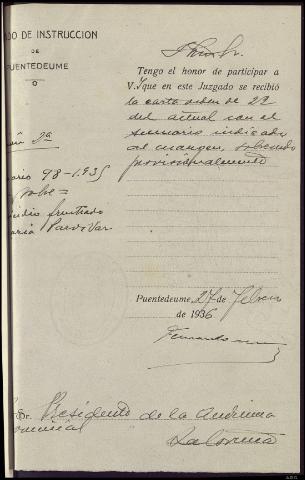 DO DE INSTRUCCION
DE
PUENTEDEUME
2ª
98-1.935
sobre=
frustrado
Pardo Var.
Tengo el honor de participar a
V. I que en este Juzgado se recibió
la carta orden de 22
del actual con el
sumario indicado
al margen, sobreseido
provisionalmente
Puentedeume, 27 de Febrero
de 1936
Fernando
Sr. Presidente de la Audiencia
provincial
La Coruña